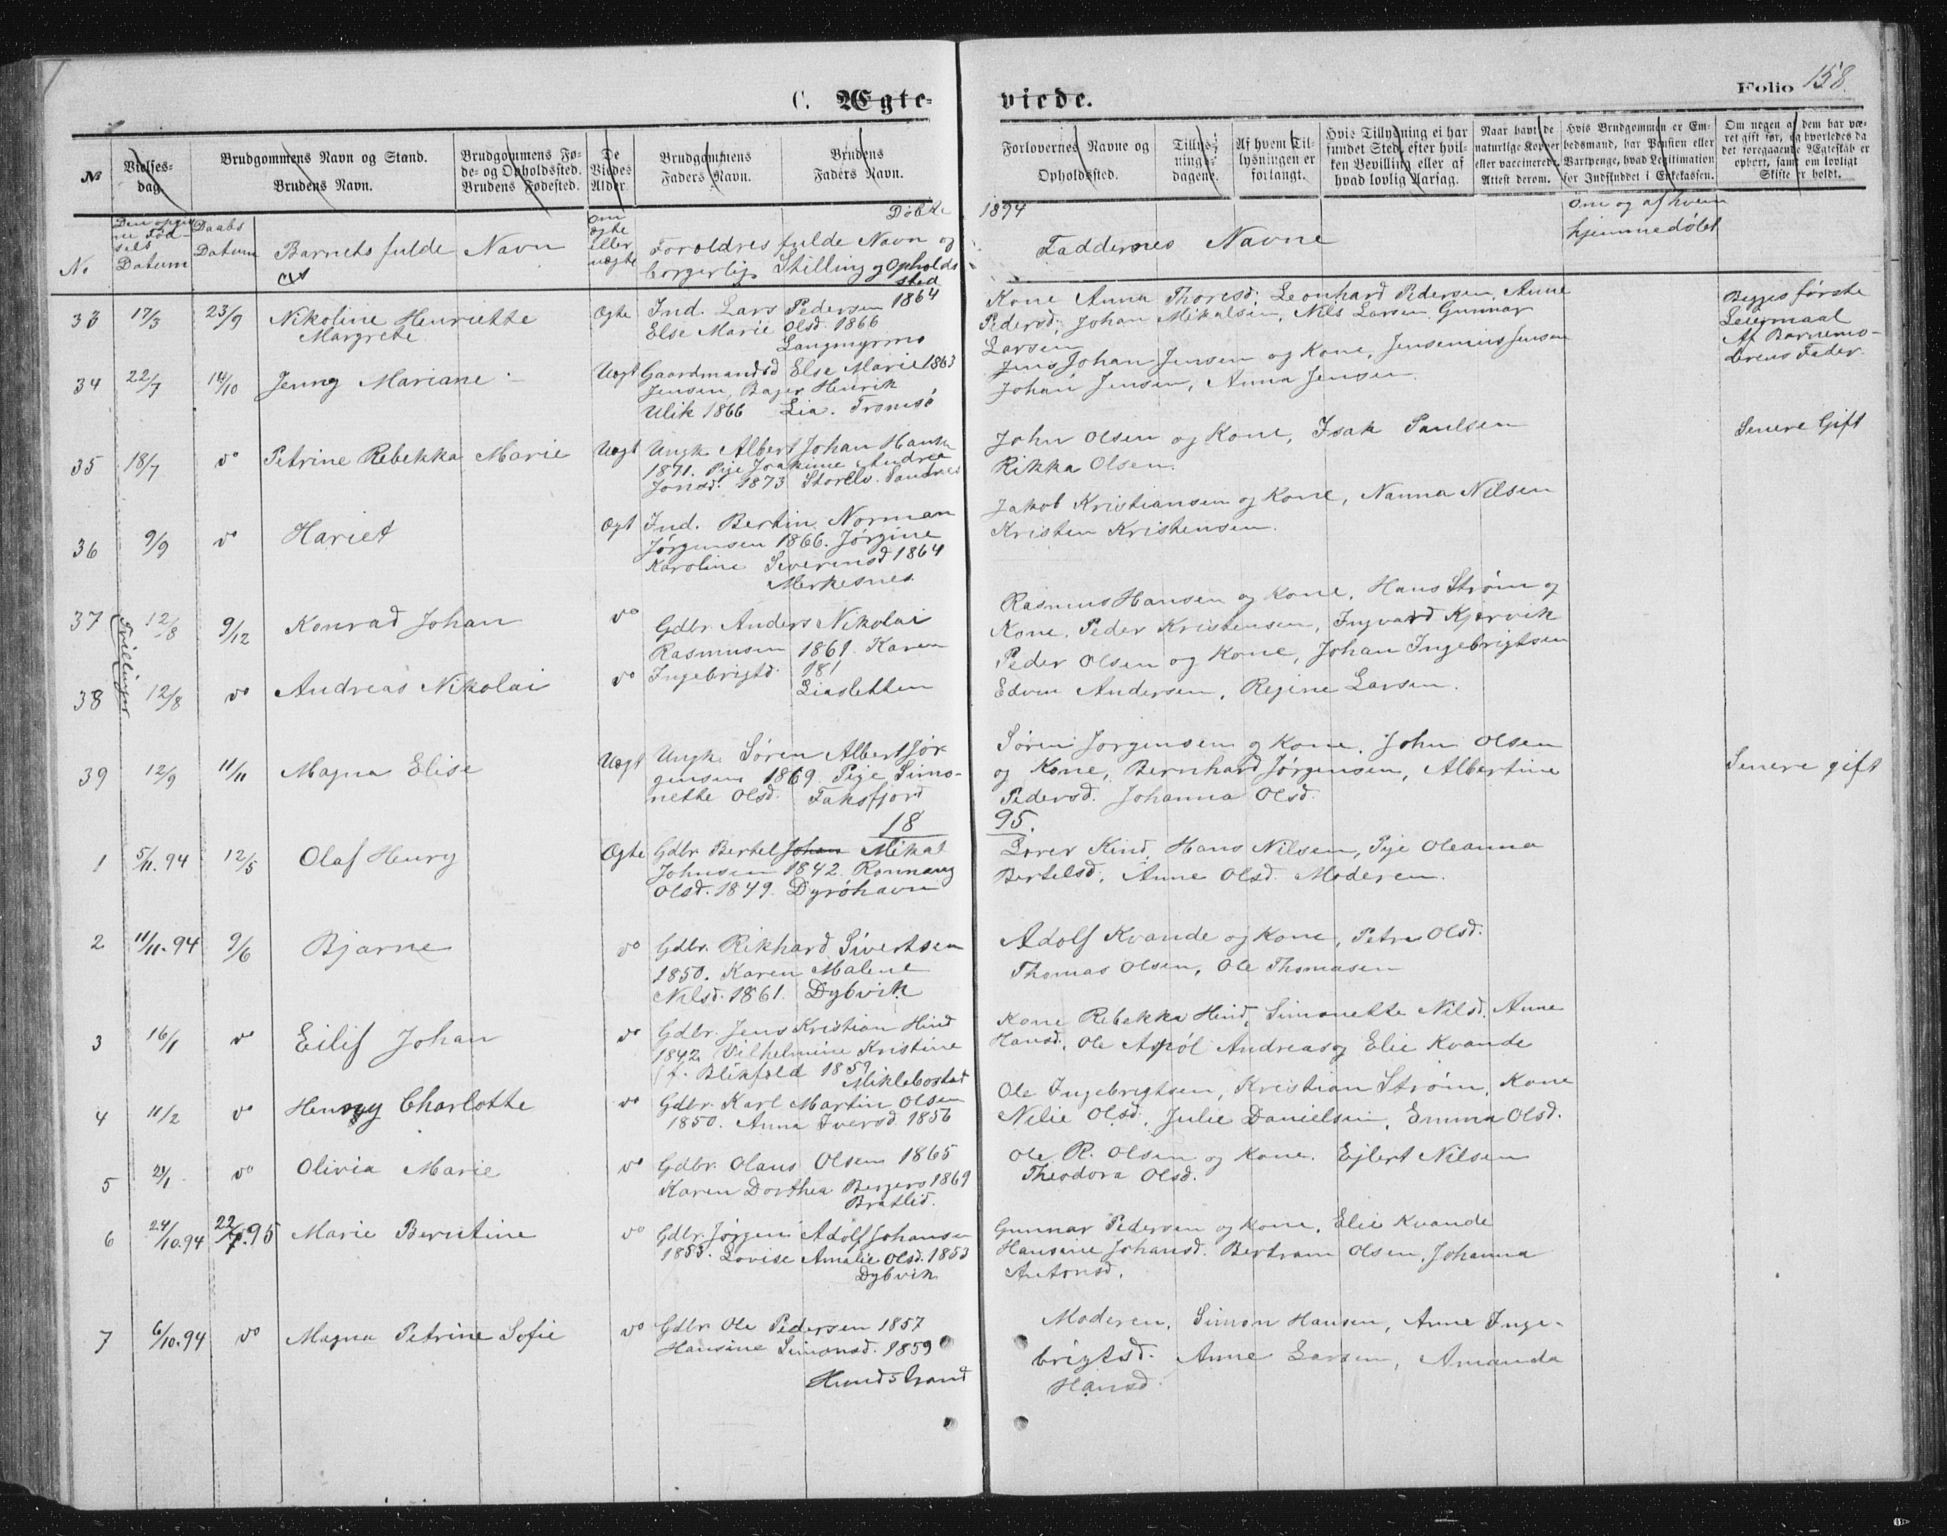 C. Ægte-
viede.
Folio 158.
No
Vielses-
dag.
Brudgommens Navn og Stand.
Brudens Navn.
Brudgommens Fø-
de- og Opholdssted.
Brudens Fødested.
De
Viedes
Alder.
Brudgommens
Faders Navn.
Brudens
Faders Navn.
Forlovernes Navne og
Opholdssted.
Tillys-
nings-
dagene.
Af hvem Til-
lysningen er
forlangt.
Hvis Tillysning ei har
fundet Sted, efter hvil-
ken Bevilling eller af
hvad lovlig Aarsag.
Naar havt de
naturlige Kopper
eller vaccinerede.
Attest derom.
Hvis Brudgommen er Em-
bedsmand, har Pension eller
Vartpenge, hvad Legitimation
for Indskuddet i Enkekassen.
Om nogen af dem har væ-
ret gift før, og hvorledes da
det foregaaende Ægteskab er
ophørt, samt om lovligt
Skifte er holdt.
Døbte
1894
No
Den opgiv
ne Fød-
sels
Datum
Daabs
Datum
Barnets fulde Navn
Om
ægte
eller
uægte
Foroldres fulde Navn og
borgerlig Stilling og Opholds
sted
Faddernes Navne
Om og af hvem
hjemmedøbt
33 17/3 23/9 Nikoline Henriette
Margrete
Ægte Ind. Lars Pedersen 1864
Else Marie Olsd. 1866
Langmyrmo
Kone Anna Thoresd. Leonhard Pedersen, Anne
Pedersd. Johan Mikalsen, Nils Larsen Gunnar
Larsen
34 22/7 14/10 Jenny Mariane
Uægt Gaardmandsd Else Marie 1863
Jensen, Bager Henrik
Ulik 1866 Lia. Tromsø
Jens Johan Jensen og Kone, Jensenius Jensen
Johan Jensen, Anna Jensen
Begges første
Leiermaal
Af Barnemo-
derens Fader.
35 18/7 do Petrine Rebekka Marie
Uægt Ungk. Albert Johan Hansen
1871. Pige Joakime Andrea
Jonsd. 1873 Storelv. Sandnes
John Olsen og Kone, Isak Paulsen
Rikka Olsen.
Senere Gift
36 9/9 do Hariet
Ægt Ind. Bertin Norman
Jørgensen 1866. Jørgine
Karoline Siverinsd 1864
Merkesnes
Jakob Kristiansen og Kone, Nanna Nilsen
Kristen Kristensen.
37 12/8 9/12 Konrad Johan
do Gdbr. Anders Nikolai
Rasmusen 1861. Karen
Rasmus Hansen og Kone, Hans Strøm og
Kone. Peder Kristensen, Ingvard Kjervik
Tvillinger
38 12/8 do Andreas Nikolai
do Ingebrigtd. 181
Liasletten
Peder Olsen og Kone, Johan Ingebrigtsen
Edvin Andersen, Regine Larsen.
39 12/9 11/11 Magna Elise
Uægt Ungk. Søren Albert Jør-
gensen 1869. Pige Simo-
nette Olsd. Faksfjord
Søren Jørgensen og Kone. John Olsen
og Kone, Bernhard Jørgensen, Albertine
Pedersd. Johanna Olsd.
Senere gift
18
95.
1 5/11.94 12/5 Olaf Henry
Ægte Gdbr. Bertel Johan Mikal
Johnsen 1842. Ronnaug
Olsd. 1849. Dyrøhavn
Lærer Kind, Hans Nilsen, Pige Oleanna
Bertelsd. Anne Olsd. Moderen.
2 11/11.94 9/6 Bjarne
do Gdbr. Rikhard Sivertsen
1850. Karen Malene
Nilsd. 1861. Dybvik
Adolf Kvande og Kone, Petra Olsd.
Thomas Olsen, Ole Thomasen
3 16/1 do Eilif Johan
do Gdbr. Jens Kristian Hind
1842 Vilhelmine Kristine
f. Blikfeld 1859
Miklebostad
Kone Rebekka Hind, Simonette Nilsd. Anne
Hansd. Ole Apøl Andreas og Elie Kvande
4 11/2 do Henny Charlotte
do Gdbr. Karl Martin Olsen
1850. Anna Iversd. 1856
Ole Ingebrigtsen, Kristian Strøm, Kone
Nelie Olsd, Julie Danielsen, Emma Olsd.
5 21/1 do Olivia Marie
do Gdbr. Olaus Olsen 1865
Karen Dorthea Bergers 1869
Bratlid.
Ole R. Olsen og Kone. Ejlert Nilsen
Theodora Olsd.
6 24/10.94 22/7.95 Marie Berntine
do Gdbr. Jørgen Adolf Johansen
1853. Lovise Amalie Olsd. 1853
Dybvik
Gunnar Pedersen og Kone, Elie Kvande
Hansine Johansd. Bertram Olsen, Johanna
Antonsd.
7 6/10.94 do Magna Petrine Sofie
do Gdbr. Ole Pedersen 1857
Hansine Simonsd. 1859
Hundstrand
Moderen, Simon Hansen, Anne Inge-
brigtsd. Anne Larsen, Amanda
Hansd.